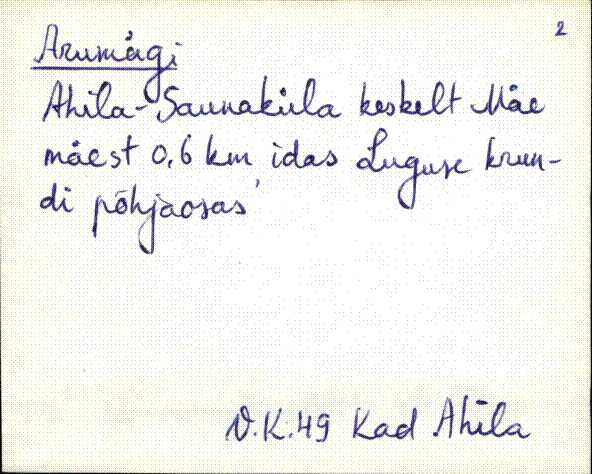 2
Arumägi
Ahila-Saunaküla keskelt Mäe
mäest 0,6 km idas Luguse krun-
di põhjaosas
V.K.49 Kad Ahila